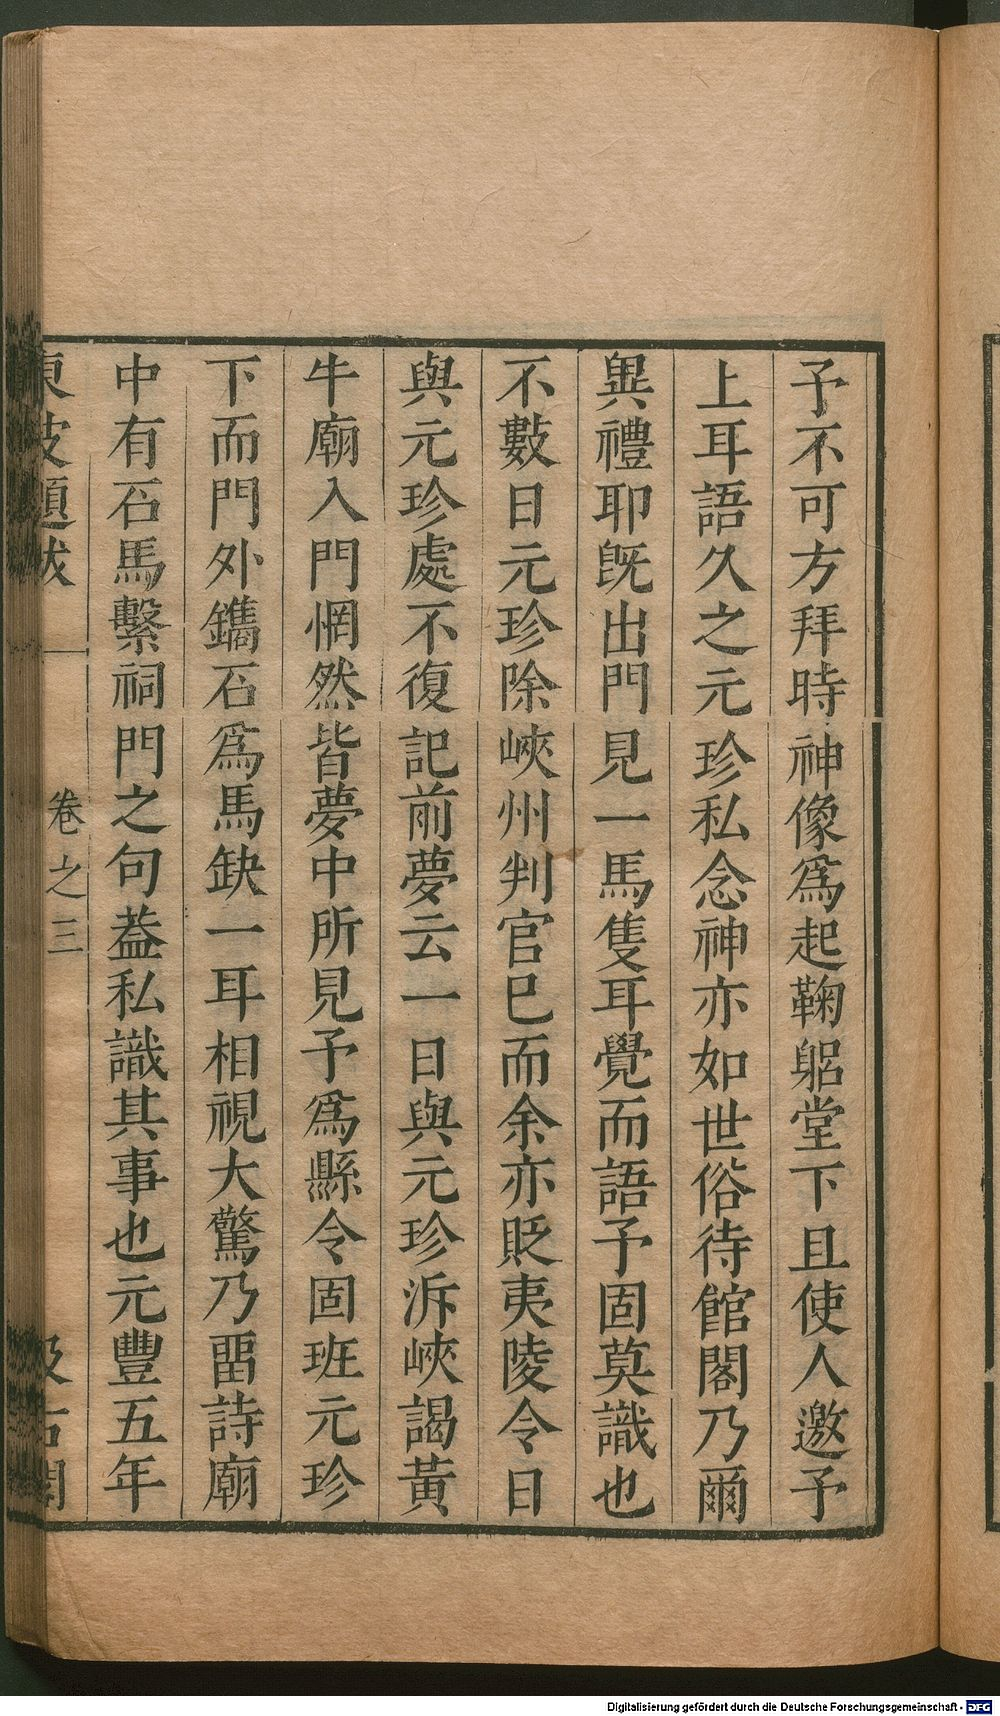 予不可方拜時神像爲起鞠躳堂下且使人邀予
上耳語久之元珍私念神亦如世俗待館閣乃爾
異禮耶旣出門見一馬隻耳覺而語予固莫識也
不數日元珍除峽州判官已而余亦貶夷陵令日
與元珍處不復記前夢云一日與元珍泝峽謁黃
牛廟入門惘然皆夢中所見予爲縣令固班元珍
下而門外鐫石爲馬缺一耳相視大驚乃畱詩廟
中有石馬繫祠門之句葢私識其事也元豐五年
東坡題跋 卷之三 汲古閣
Digitalisierung gefördert durch die Deutsche Forschungsgemeinschaft - DFG